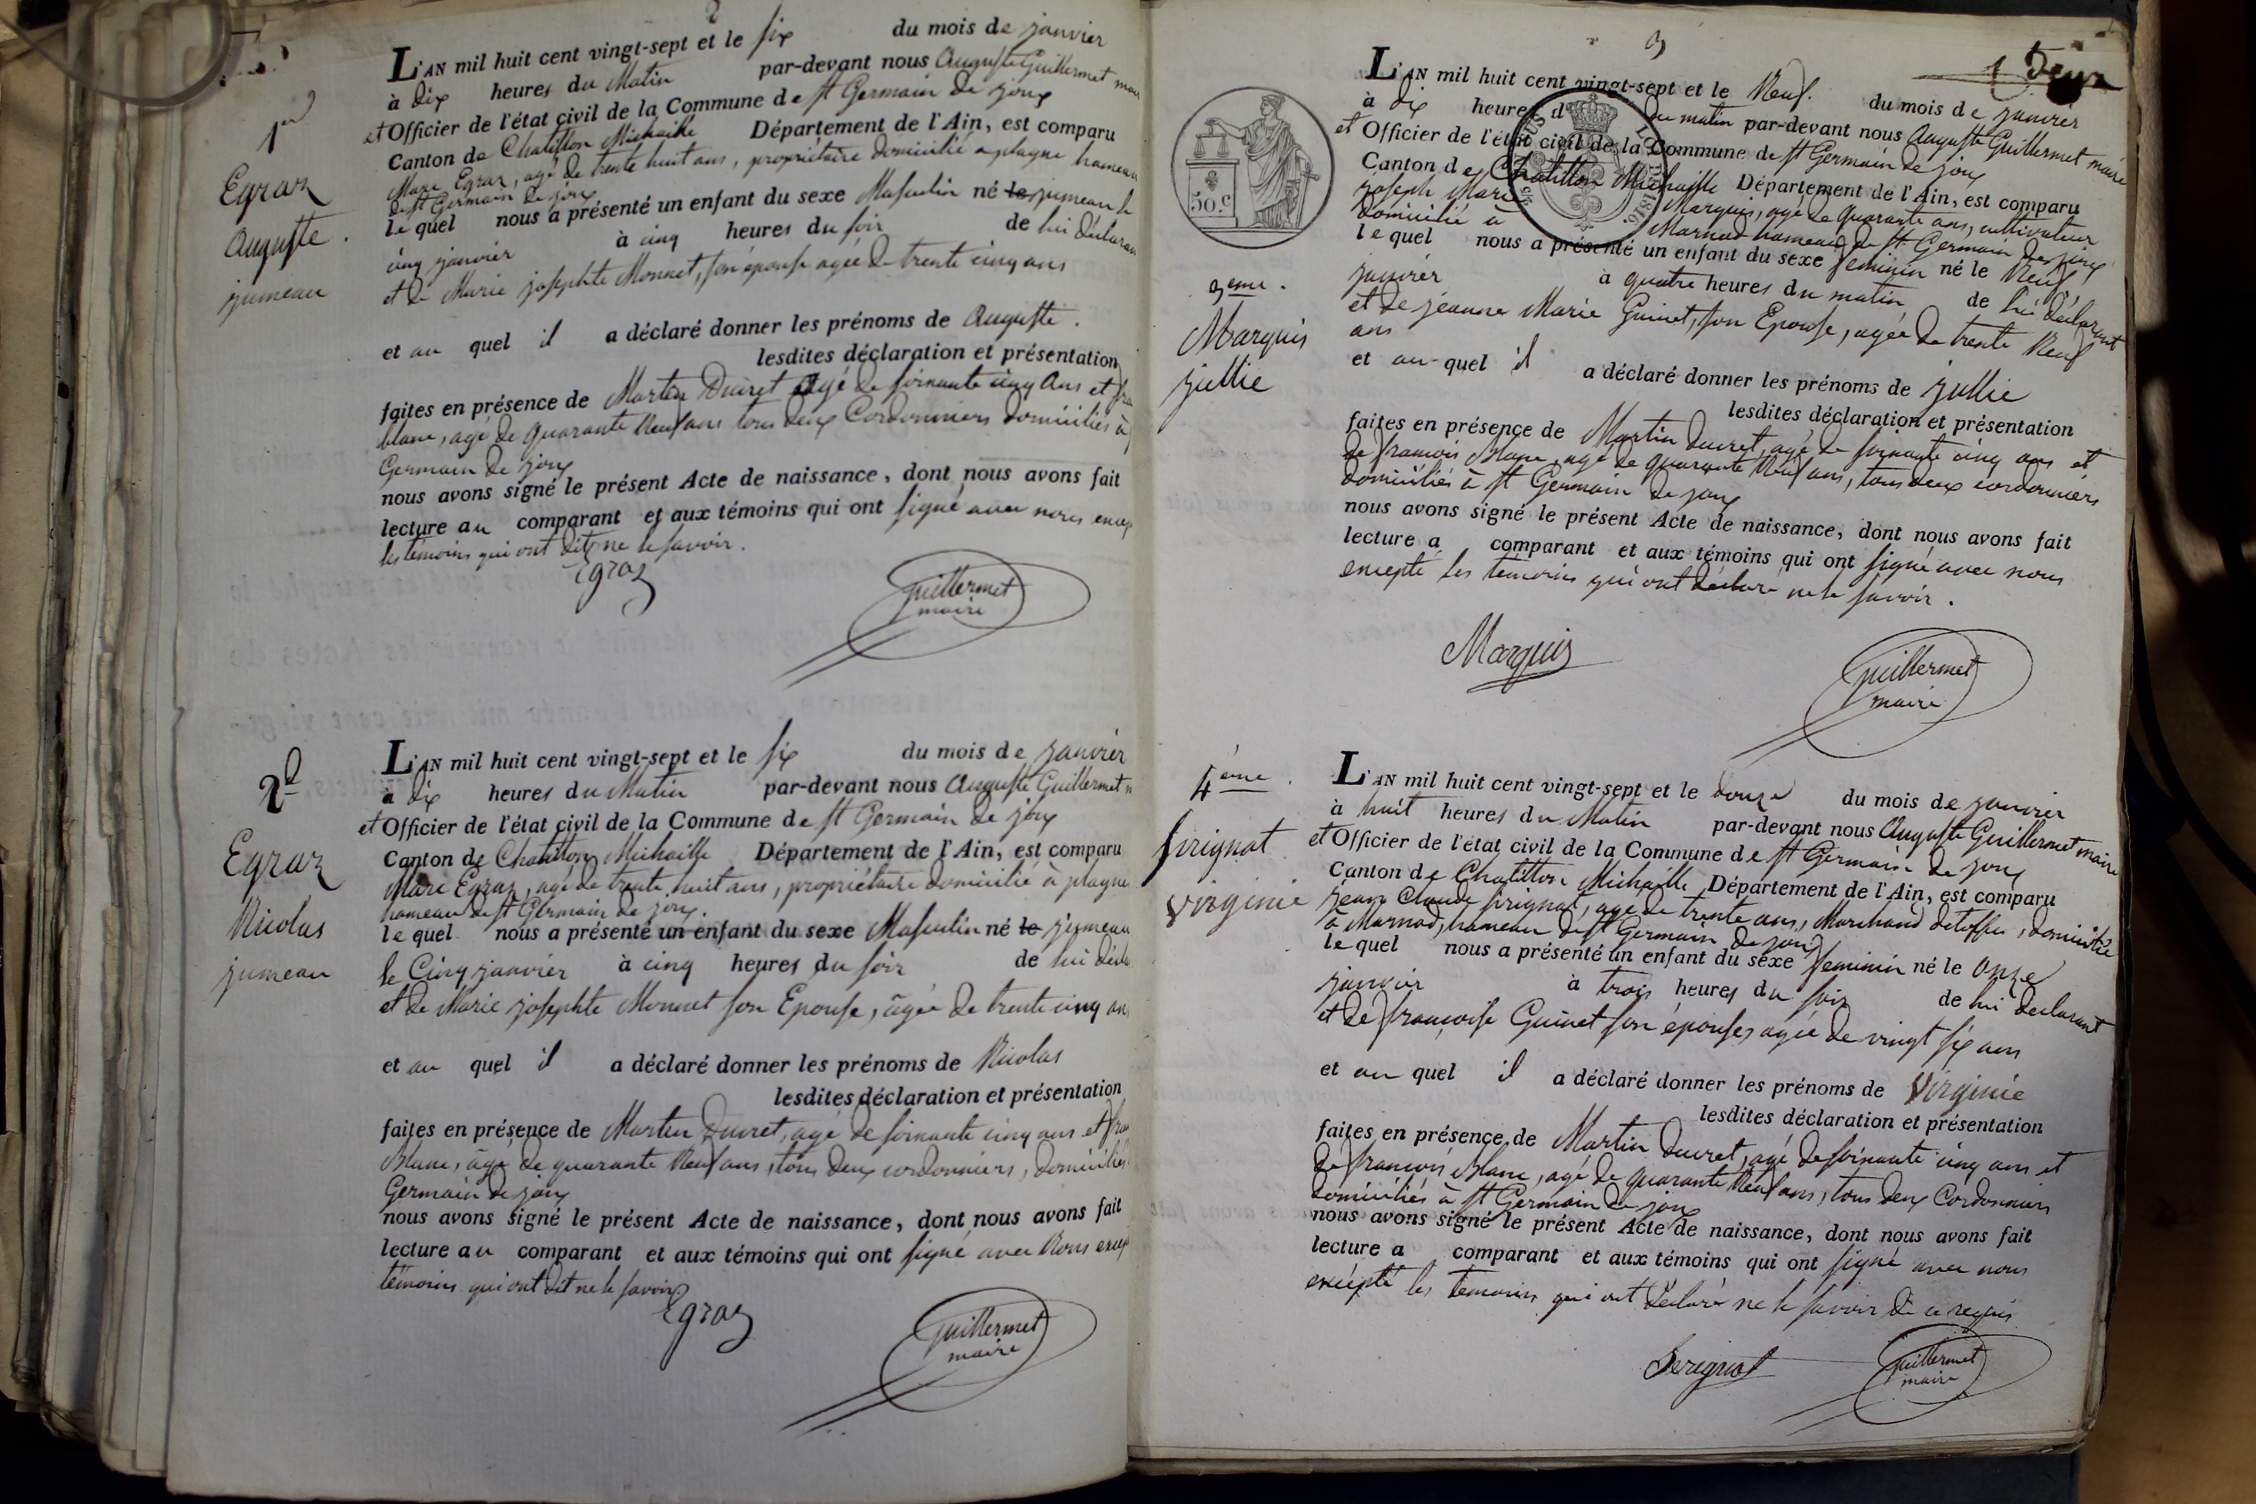 1er
Egraz
Auguste.
jumeau
L'AN mil huit cent vingt-sept et le six du mois de janvier
à dix heures du Matin par-devant nous Auguste Guillermet maire
et Officier de l'état civil de la Commune de st Germain de joux
Canton de Chatillon Michaille Département de l'Ain, est comparu
Marc Egraz, agé de trente huit ans, propriétaire domicilié a plagne hameau
de st Germain de joux
le quel nous a présenté un enfant du sexe Masculin né le jumeau le
cinq janvier à cinq heures du soir de lui déclarant
et de Marie josephte Monnet, son épouse agée de trente cinq ans
et au quel il a déclaré donner les prénoms de Auguste.
lesdites déclaration et présentation
faites en présence de Martin Ducret agé de soixante cinq Ans et fra
blanc, agé de quarante Neuf ans tous deux Cordonniers domiciliés à
Germain de joux
nous avons signé le présent Acte de naissance, dont nous avons fait
lecture au comparant et aux témoins qui ont signé avec nous excep
les témoins qui ont dit ne le savoir.
Egraz
Guillermet
maire
2d
Egraz
Nicolas
jumeau
L'AN mil huit cent vingt-sept et le six du mois de janvier
à dix heures du Matin par-devant nous Auguste Guillermet m
et Officier de l'état civil de la Commune de st Germain de joux
Canton de Chatillon Michaille Département de l'Ain, est comparu
Marc Egraz, agé de trente huit ans, propriétaire domicilié à plagne
hameau de st Germain de joux.
le quel nous a présenté un enfant du sexe Masculin né le jumeau
le Cinq janvier à cinq heures du soir de lui décla
et de Marie josephte Monnet son Epouse, âgée de trente cinq ans
et au quel il a déclaré donner les prénoms de Nicolas
lesdites déclaration et présentation
faites en présence de Martin Ducret, agé de soixante cinq ans et fran
Blanc, âgé de quarante Neuf ans, tous deux cordonniers, domiciliés
Germain de joux
nous avons signé le présent Acte de naissance, dont nous avons fait
lecture au comparant et aux témoins qui ont signé avec Nous excep
témoins qui ont dit ne le savoir
Egraz
Guillermet
maire
3
1 Deux
50.c
3eme.
Marquis
jullie
L'AN mil huit cent vingt-sept et le Neuf. du mois de janvier
à dix heures du matin par-devant nous Auguste Guillermet maire
et Officier de l'état civil de la Commune de st Germain de joux
Canton de Chatillon Michaille Département de l'Ain, est comparu
joseph Marie Marquis, agé de quarante ans, cultivateur
domicilié à Marnod hameau de st Germain de joux
le quel nous a présenté un enfant du sexe feminin né le Neuf
janvier à quatre heures du matin de lui déclarant
et de jeanne Marie Guinet, son Epouse, agée de trente Neuf
ans
et au quel il a déclaré donner les prénoms de jullie
lesdites déclaration et présentation
faites en présence de Martin ducret, agé de soixante cinq ans et
de francois Blanc, agé de quarante Neuf ans, tous deux cordonniers
domiciliés à st Germain de joux
nous avons signé le présent Acte de naissance, dont nous avons fait
lecture a comparant et aux témoins qui ont signé avec nous
excepté les témoins qui ont déclaré ne le savoir.
Marquis
Guillermet
maire
4ème.
Sirignat
virginie
L'AN mil huit cent vingt-sept et le douze du mois de janvier
à huit heures du Matin par-devant nous Auguste Guillermet maire
et Officier de l'état civil de la Commune de st Germain de joux
Canton de Chatillon Michaille Département de l'Ain, est comparu
jean Claude Sirignat, agé de trente ans, Marchand detoffes, domicilié
à Marnod, hameau de st Germain de joux
le quel nous a présenté un enfant du sexe feminin né le onze
janvier à trois heures du soir de lui déclarant
et de françoise Guinet son épouse, agée de vingt six ans
et au quel il a déclaré donner les prénoms de Virginie
lesdites déclaration et présentation
faites en présence de Martin ducret, agé de soixante cinq ans et
de francois Blanc, agé de quarante Neuf ans, tous deux Cordonniers
domiciliés à st Germain de joux
nous avons signé le présent Acte de naissance, dont nous avons fait
lecture a comparant et aux témoins qui ont signé avec nous
excépté les temoins qui ont déclaré ne le savoir de ce requis
Seregniat
Guillermet
maire